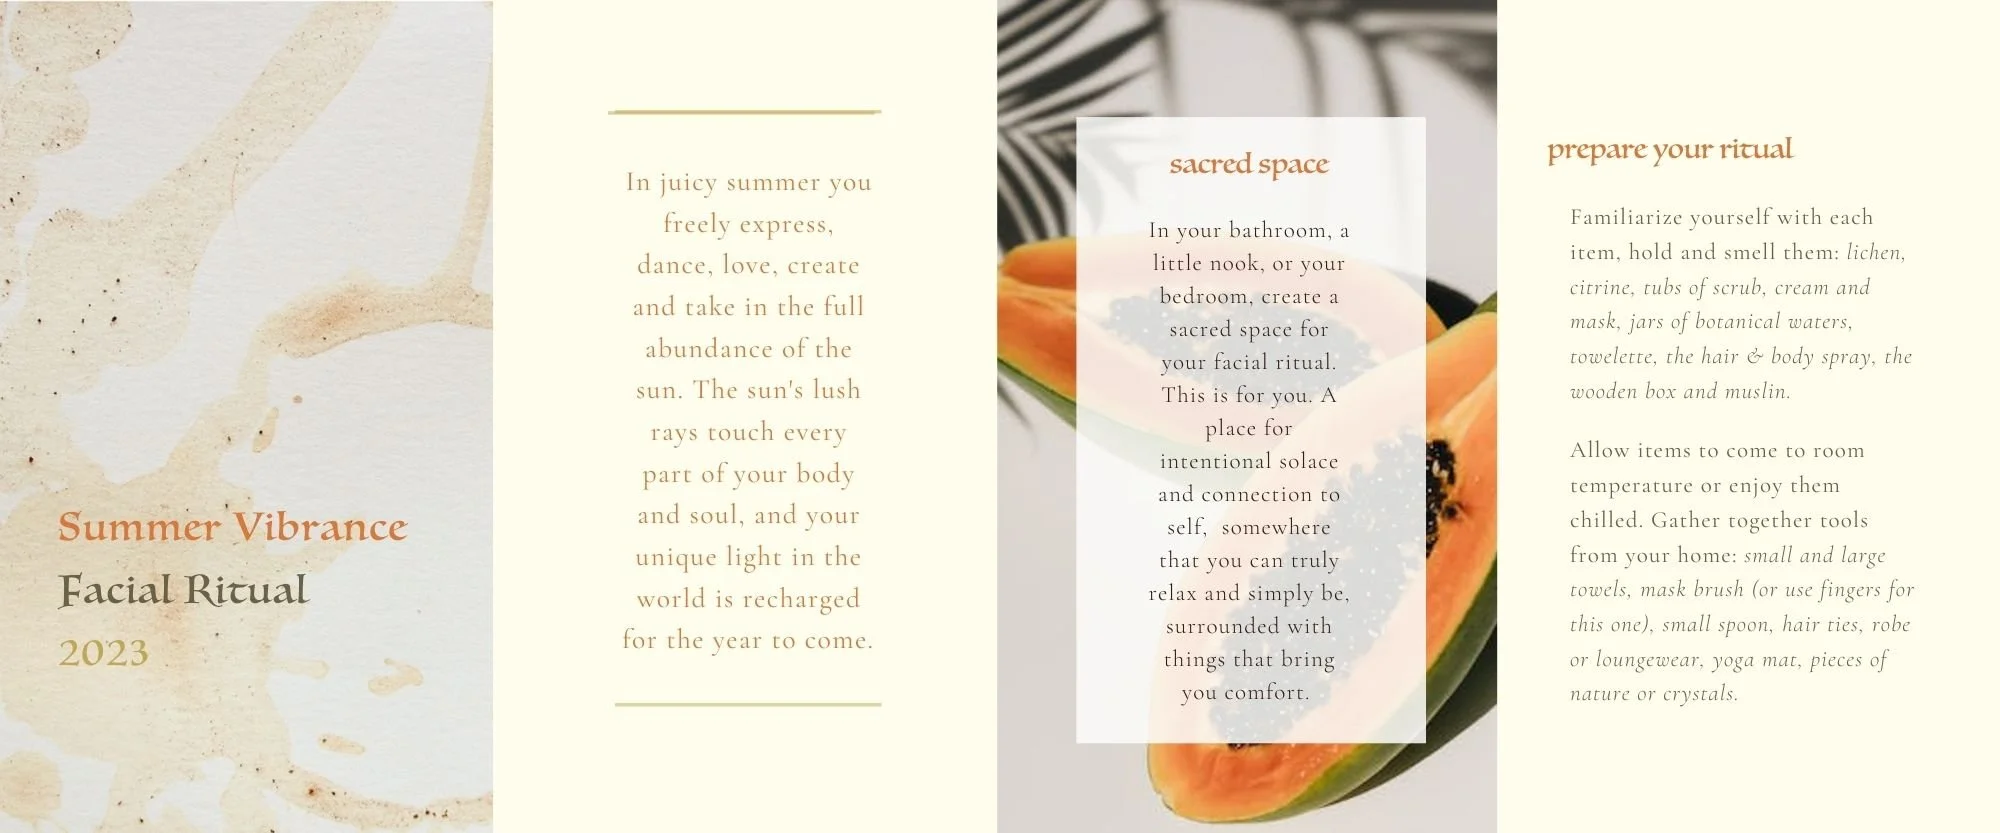 Summer Vibrance
Facial Ritual
2023
In juicy summer you
freely express,
dance, love, create
and take in the full
abundance of the
sun. The sun's lush
rays touch every
part of your body
and soul, and your
unique light in the
world is recharged
for the year to come.
sacred space
In your bathroom, a
little nook, or your
bedroom, create a
sacred space for
your facial ritual.
This is for you. A
place for
intentional solace
and connection to
self,  somewhere
that you can truly
relax and simply be,
surrounded with
things that bring
you comfort.
prepare your ritual
Familiarize yourself with each
item, hold and smell them: lichen,
citrine, tubs of scrub, cream and
mask, jars of botanical waters,
towelette, the hair & body spray, the
wooden box and muslin.
Allow items to come to room
temperature or enjoy them
chilled. Gather together tools
from your home: small and large
towels, mask brush (or use fingers for
this one), small spoon, hair ties, robe
or loungewear, yoga mat, pieces of
nature or crystals.